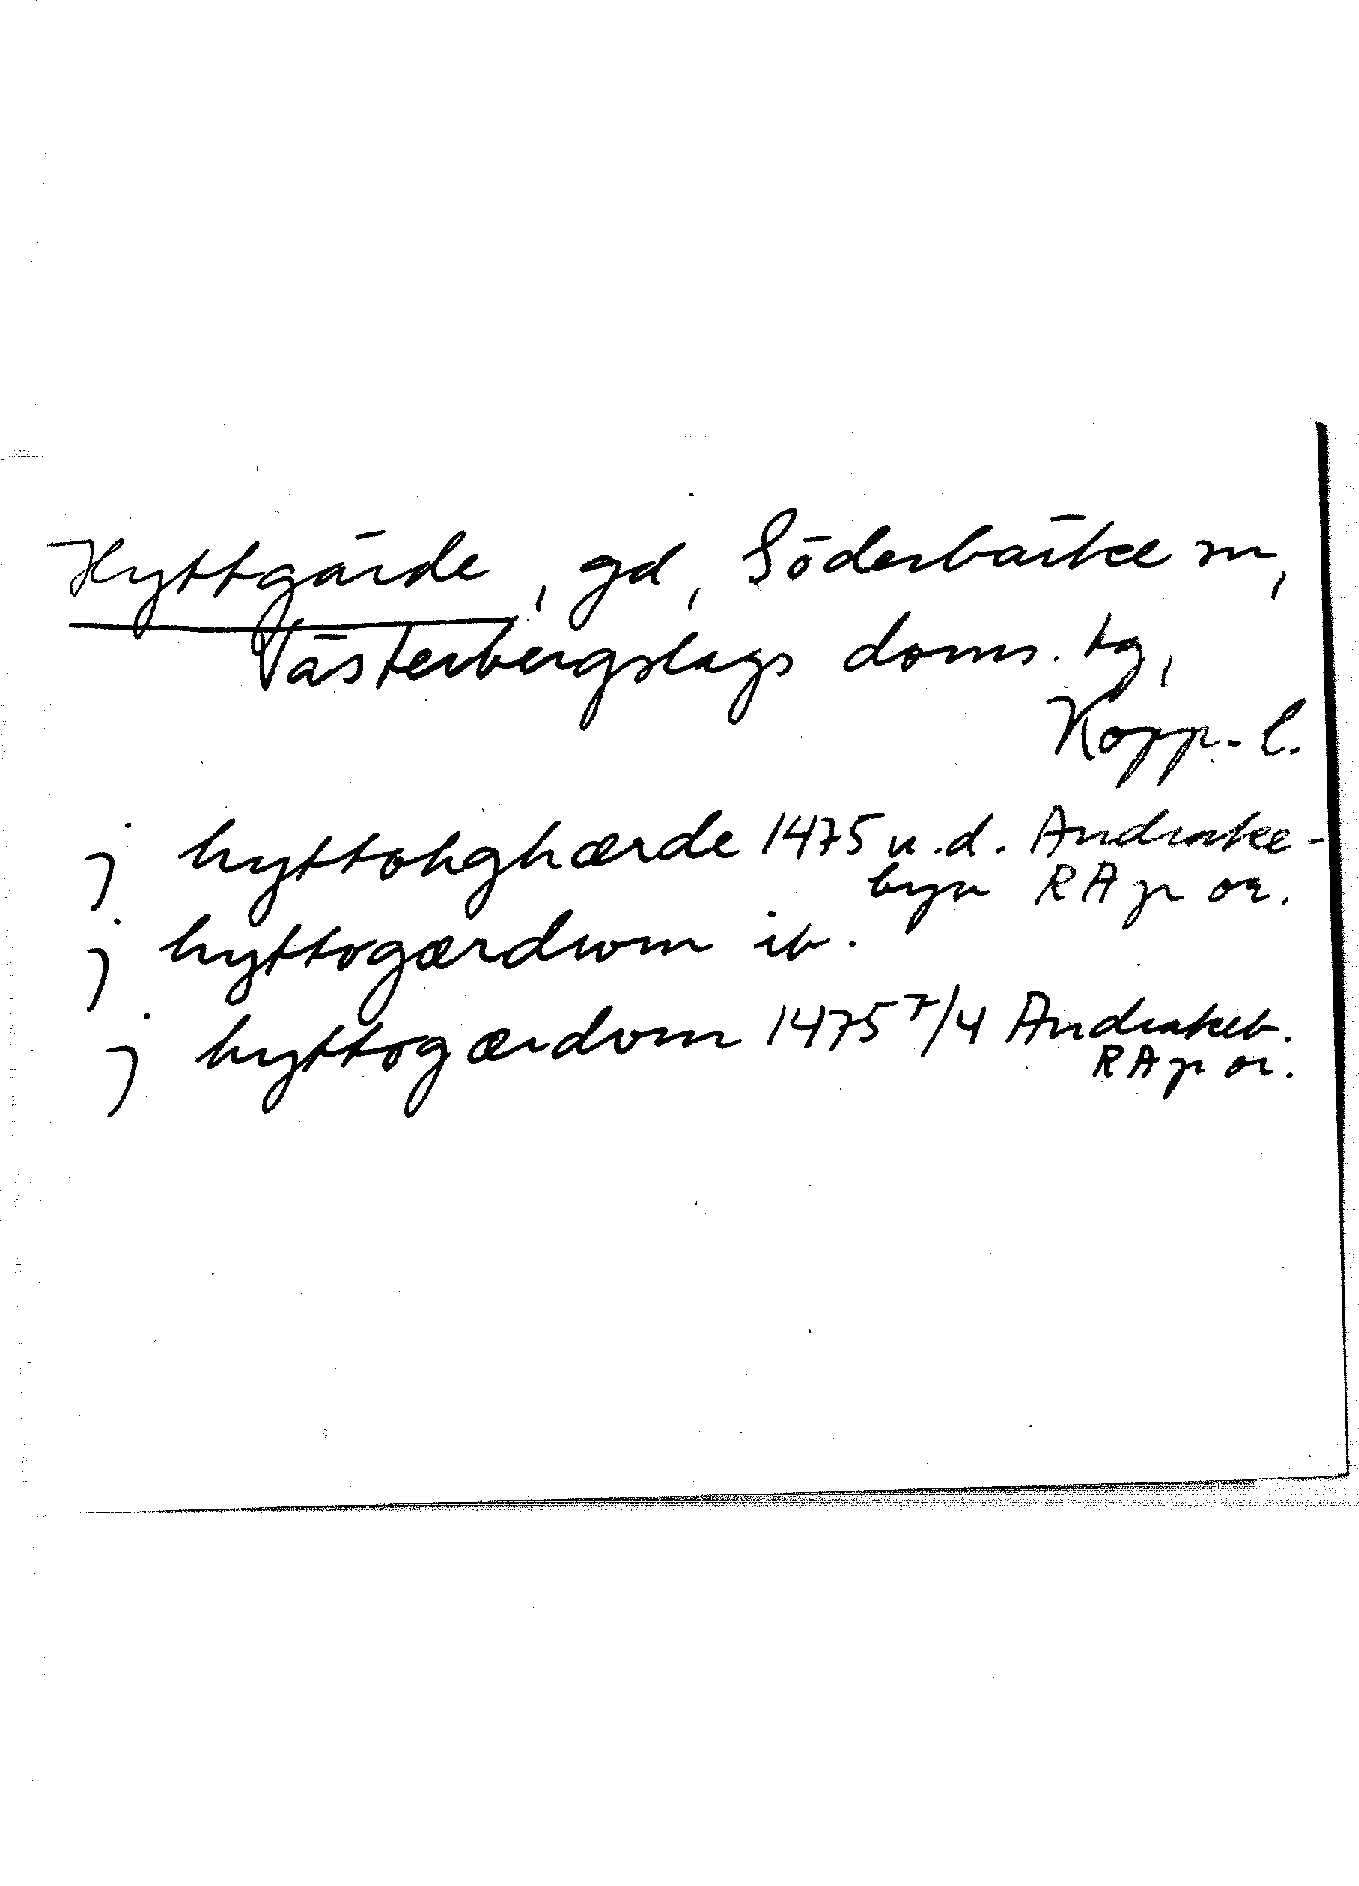 Hyttgärde, gd, Söderbärke sn,
Västerbergslags doms. tg,
Kopp. l.
j hyttohghærde 1475 u.d. Andreæ-
byn RA p or.
j hyttogærdwm ib.
j hyttogærdom 1475 7/4
RA p or.